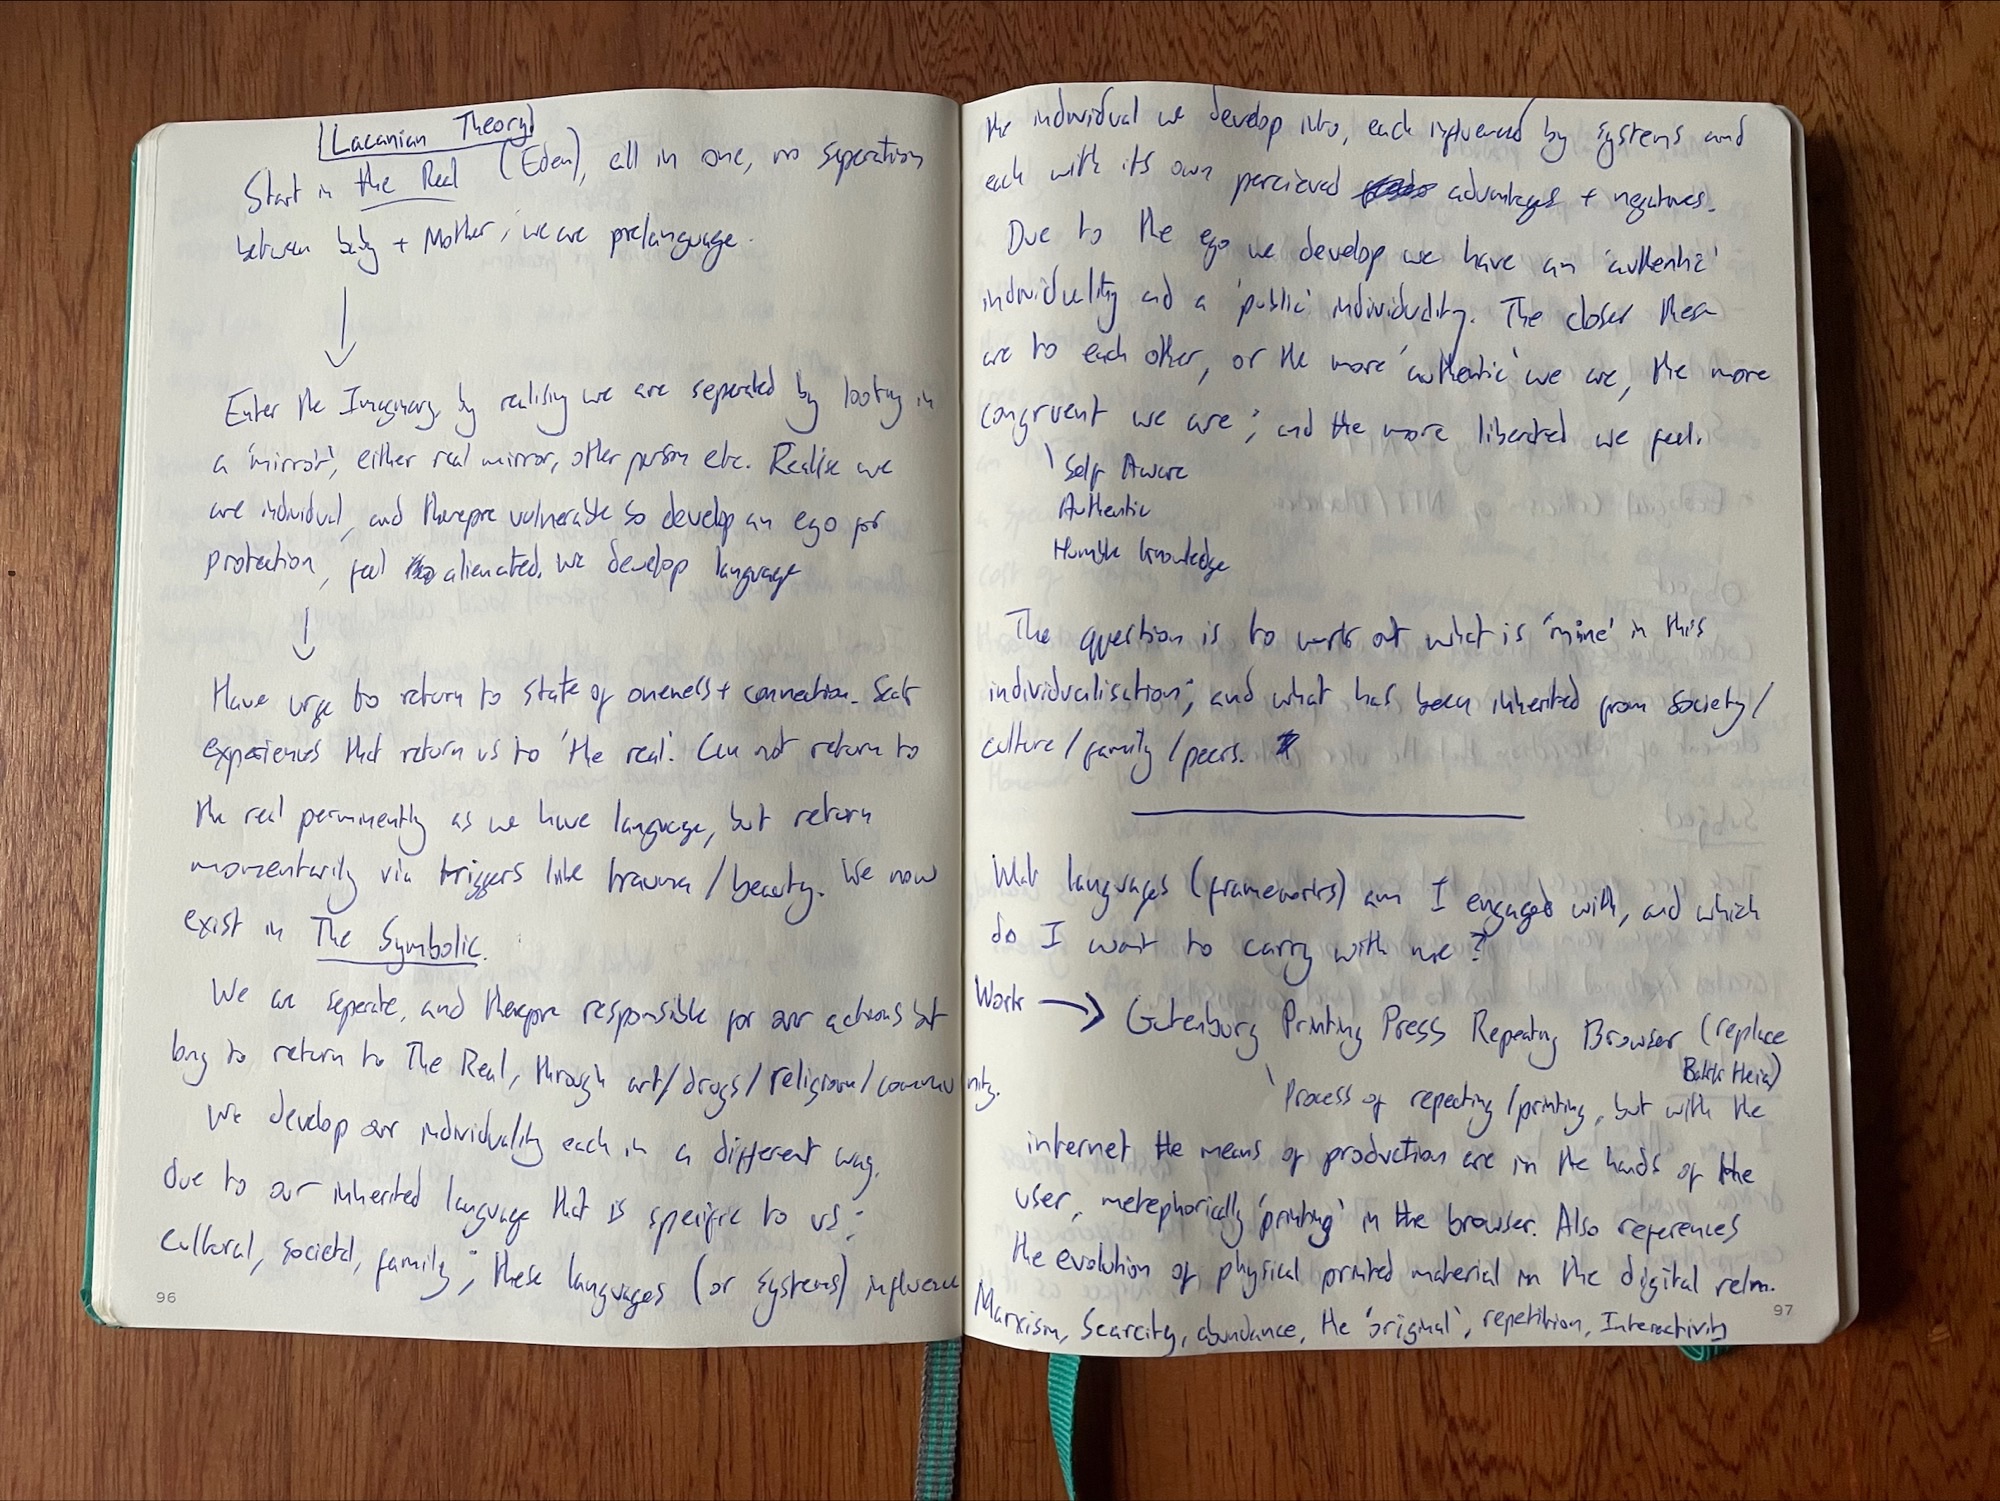 Lacanian Theory
Start in the Real (Eden), all in one, no seperation
between baby + Mother, we are prelanguage.
Enter the Imaginary, by realising we are seperated by looking in
a 'mirror', either real mirror, other person etc. Realise we
are individual, and therefore vulnerable so develop an ego for
protection, feel alienated. We develop language
Have urge to return to state of oneness + connection. Seek
experiences that return us to 'the real'. Can not return to
the real perminently as we have language, but return
momentarily via triggers like trauma/beauty. We now
exist in The Symbolic.
We are seperate, and therefore responsible for our actions but
long to return to The Real, through art/drugs/religion/community.
We develop our individuality each in a different way,
due to our inherited language that is specific to us;
cultural, societal, family; these languages (or systems) influence
96
the individual we develop into, each influenced by systems and
each with its own percieved advantages + negatives.
Due to the ego we develop we have an 'authentic'
individuality and a 'public' individuality. The closer these
are to each other, or the more 'authentic' we are, the more
congruent we are; and the more liberated we feel.
Self Aware
Authentic
Humble knowledge
The question is to work out what is 'mine' in this
individualisation; and what has been inherited from society/
culture/family/peers.
What languages (frameworks) am I engaged with, and which
do I want to carry with me?
Work → Gutenburg Printing Press Repeating Browser (replace
Process of repeating/printing, but with the
internet the means of production are in the hands of the
user, metephorically 'printing' in the browser. Also references
the evolution of physical printed material in the digital relm.
Marxism, Scarcity, abundance, the 'original', repetition, Interactivity
97